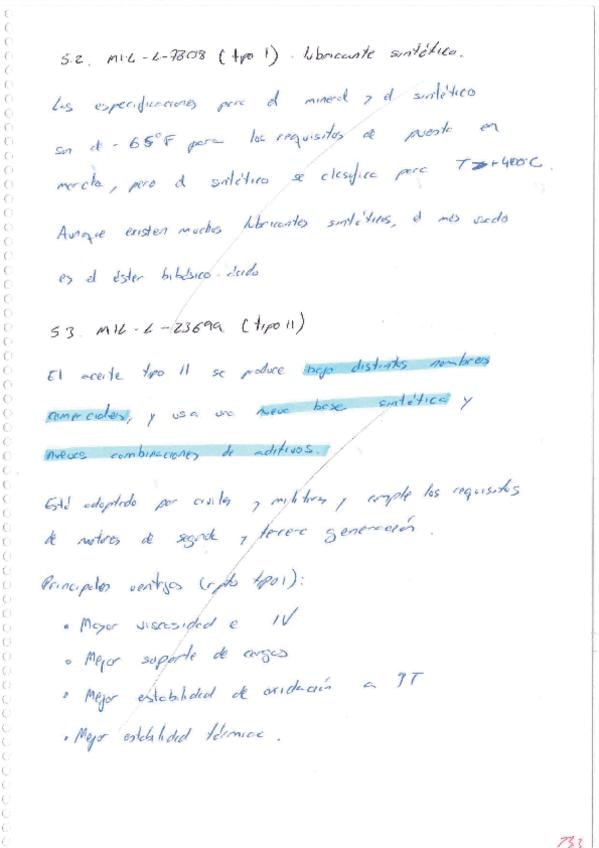 5.2. MIL-L-7808 (tipo I). lubricante sintético.
Las especificaciones para el mineral y el sintético
son el -65°F para los requisitos de puesta en
marcha, pero el sintético se clasifica para T +400°C.
Aunque existen muchos lubricantes sintéticos, el más usado
es el éster bibásico-ácido
5.3. MIL-L-23699 (tipo II)
El aceite tipo II se produce bajo distintos nombres
comerciales, y usa una nueva base sintética y
nuevas combinaciones de aditivos.
Está adoptado por civiles y militares y cumple los requisitos
de motores de segunda y tercera generación.
Principales ventajas (rpto tipo I):
• Mayor viscosidad e IV
• Mejor soporte de cargas
• Mejor estabilidad de oxidación a ↑T
• Mejor estabilidad térmica.
733